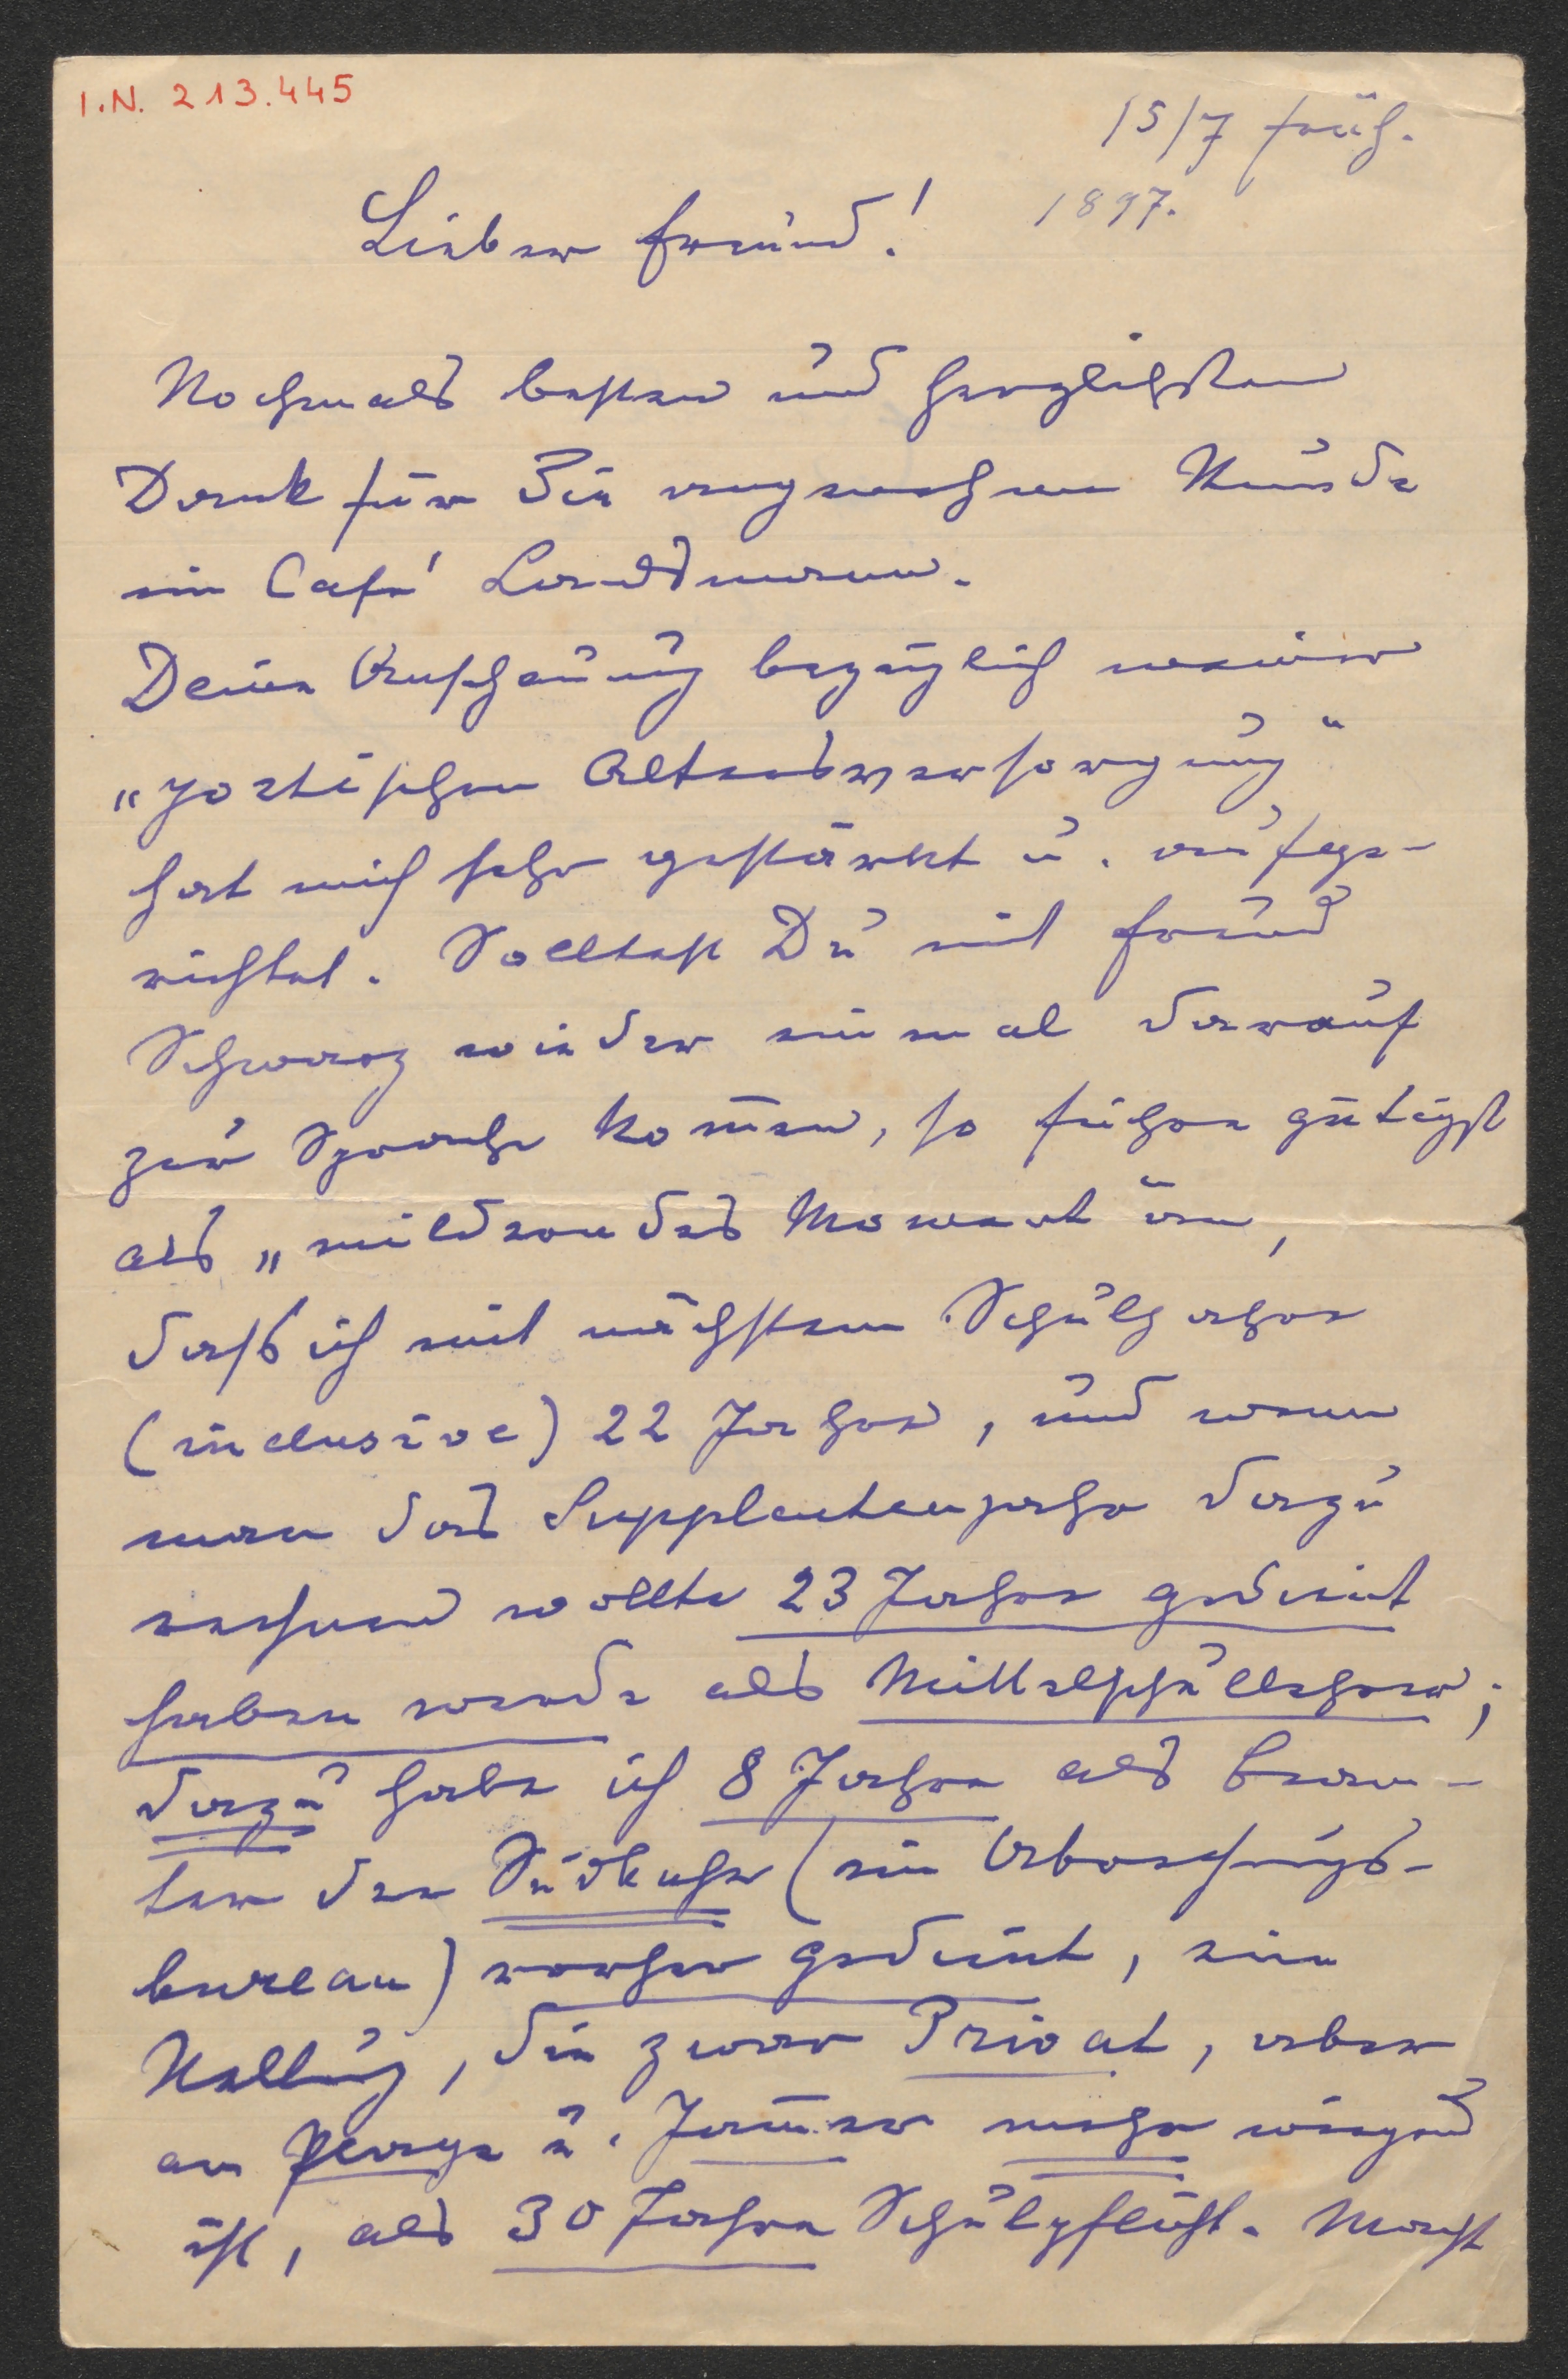 I.N. 213.445
15/7 früh.
1897.
Lieber Freund!
Nochmals besten und herzlichsten
Dank für die angenehme Stunde
im Café Landtmann.
Deine Anschauung bezüglich meiner
„poetischen Altersversorgung"
hat mich sehr gestärkt u. aufge-
richtet. Solltest Du mit Freund
Schwarz wieder einmal darauf
zur Sprache kom̅en, so führe gütigst
als „milderndes Moment" an,
daß ich mit nächstem Schuljahre
(inclusive) 22 Jahre, und wenn
man das Supplentenjahr dazu
rechnen wollte 23 Jahre gedient
haben werde als Mittelschullehrer;
dazu habe ich 8 Jahre als Beam-
ter der Südbahn (im Abrechnungs-
bureau) vorher gedient, eine
Stellung, die zwar Privat, aber
an Plage u. Jam̅er mehr wiegend
ist, als 30 Jahre Schulpflicht. Macht